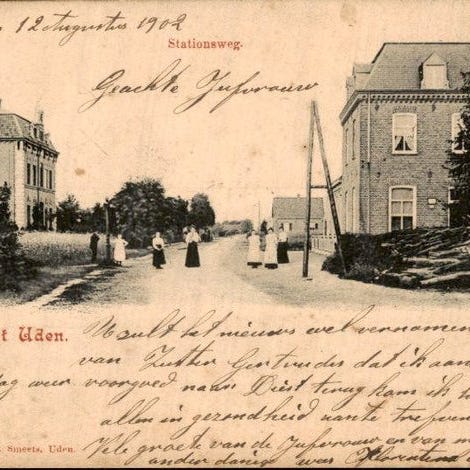 12 Augustus 1902
Stationsweg.
Geachte Jufvrouw
t Uden.
U zult het nieuws wel vernomen
van Zuster Gertrudes dat ik aan
dag weer voorgoed naar Diest terug kom ik h
allen in gezondheid aan te treffen
Vele groete van de Jufvrouw en van m
Smeets, Uden.
ander dan was Florentina